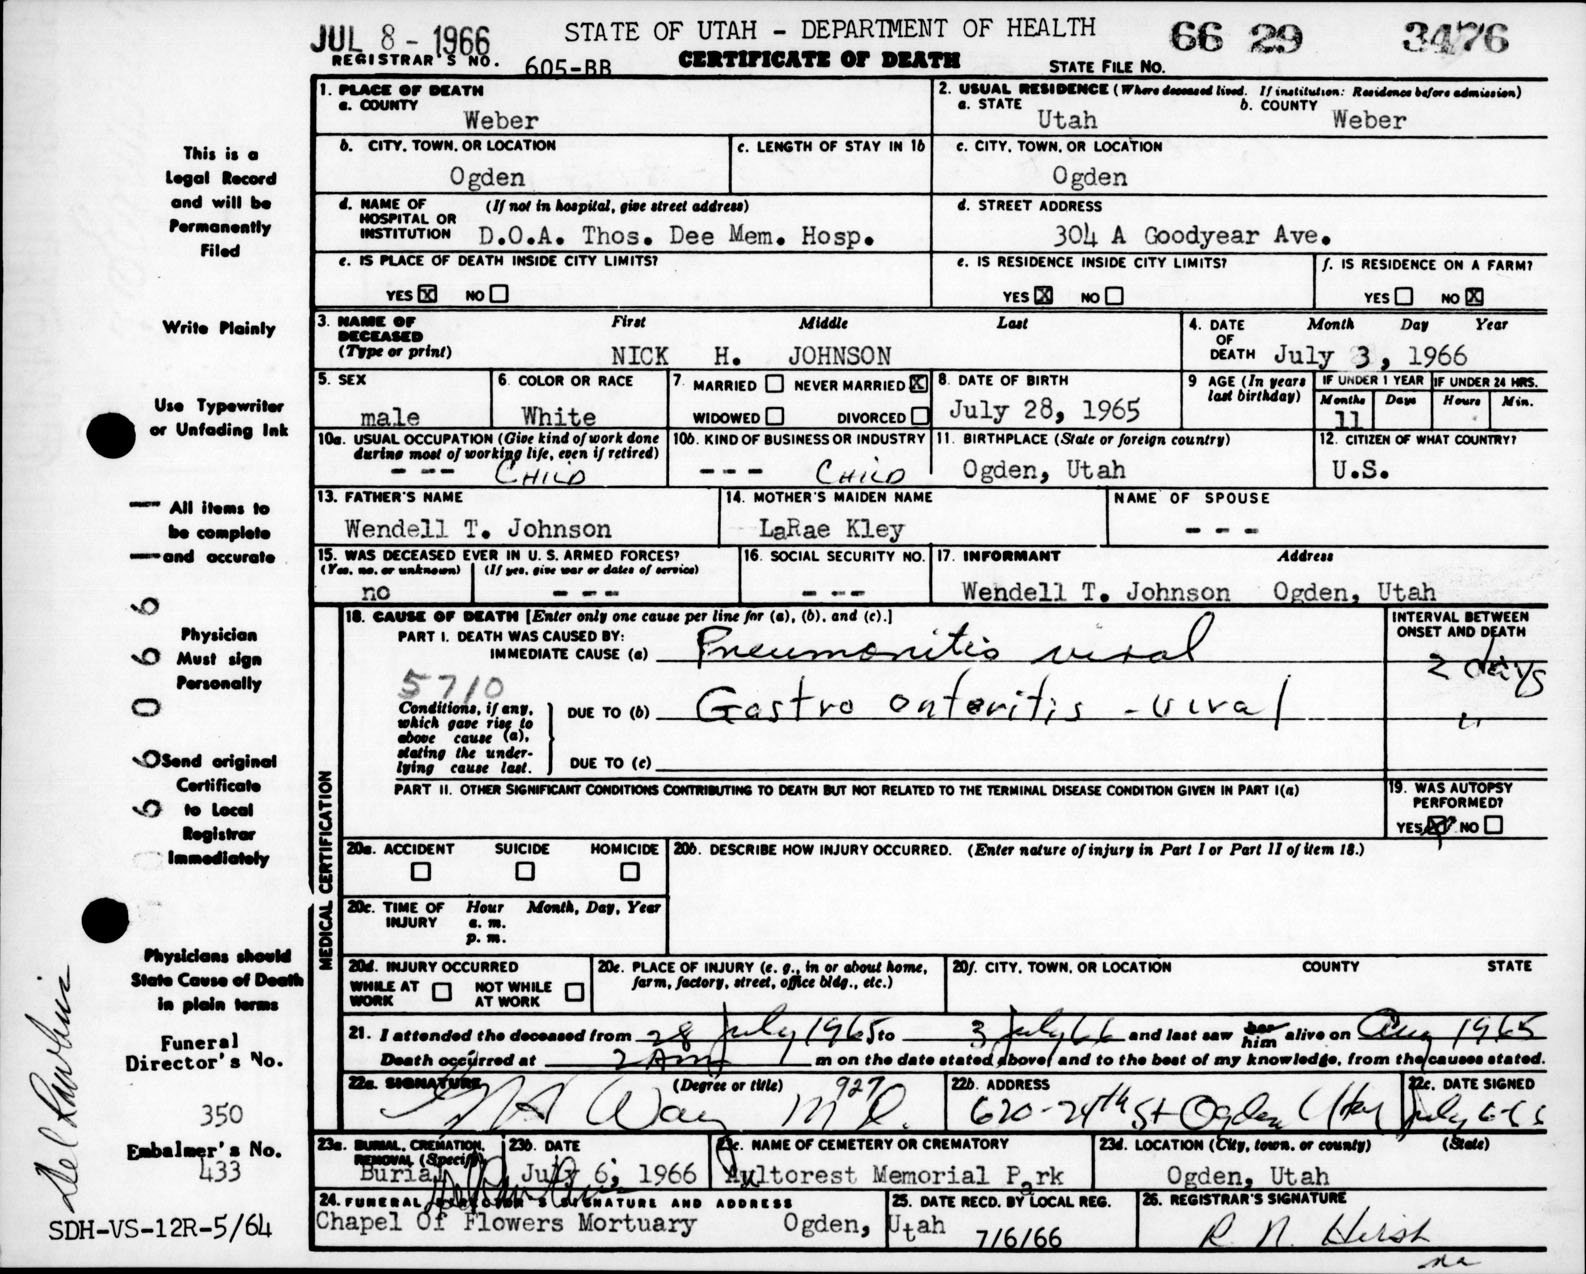 JUL 8 - 1966 STATE OF UTAH - DEPARTMENT OF HEALTH 66 29 3476
REGISTRAR'S NO. 605-BB CERTIFICATE OF DEATH STATE FILE NO.
1. PLACE OF DEATH
a. COUNTY
Weber
2. USUAL RESIDENCE (Where deceased lived. If institution: Residence before admission)
a. STATE b. COUNTY
Utah Weber
b. CITY, TOWN, OR LOCATION
Ogden
c. LENGTH OF STAY IN 1b
c. CITY, TOWN, OR LOCATION
Ogden
d. NAME OF (If not in hospital, give street address)
HOSPITAL OR
INSTITUTION D.O.A. Thos. Dee Mem. Hosp.
d. STREET ADDRESS
304 A Goodyear Ave.
e. IS PLACE OF DEATH INSIDE CITY LIMITS?
YES X NO
e. IS RESIDENCE INSIDE CITY LIMITS?
YES X NO
f. IS RESIDENCE ON A FARM?
YES NO X
3. NAME OF First Middle Last
DECEASED
(Type or print) NICK H. JOHNSON
4. DATE Month Day Year
OF
DEATH July 3, 1966
5. SEX
male
6. COLOR OR RACE
White
7. MARRIED NEVER MARRIED X
WIDOWED DIVORCED
8. DATE OF BIRTH
July 28, 1965
9 AGE (In years
last birthday)
IF UNDER 1 YEAR IF UNDER 24 HRS.
Months Days Hours Min.
11
10a. USUAL OCCUPATION (Give kind of work done
during most of working life, even if retired)
- - - CHILD
10b. KIND OF BUSINESS OR INDUSTRY
- - - CHILD
11. BIRTHPLACE (State or foreign country)
Ogden, Utah
12. CITIZEN OF WHAT COUNTRY?
U.S.
13. FATHER'S NAME
Wendell T. Johnson
14. MOTHER'S MAIDEN NAME
LaRae Kley
NAME OF SPOUSE
- - -
15. WAS DECEASED EVER IN U. S. ARMED FORCES?
(Yes, no, or unknown) (If yes, give war or dates of service)
no - - -
16. SOCIAL SECURITY NO.
- - -
17. INFORMANT Address
Wendell T. Johnson Ogden, Utah
18. CAUSE OF DEATH [Enter only one cause per line for (a), (b), and (c).]
PART I. DEATH WAS CAUSED BY:
IMMEDIATE CAUSE (a) Pneumonitis viral
5710
Conditions, if any,
which gave rise to
above cause (a),
stating the under-
lying cause last.
DUE TO (b) Gastro enteritis - viral
DUE TO (c)
INTERVAL BETWEEN
ONSET AND DEATH
2 days
"
PART II. OTHER SIGNIFICANT CONDITIONS CONTRIBUTING TO DEATH BUT NOT RELATED TO THE TERMINAL DISEASE CONDITION GIVEN IN PART I(a)
19. WAS AUTOPSY
PERFORMED?
YES X NO
MEDICAL CERTIFICATION
20a. ACCIDENT SUICIDE HOMICIDE
20b. DESCRIBE HOW INJURY OCCURRED. (Enter nature of injury in Part I or Part II of item 18.)
20c. TIME OF Hour Month, Day, Year
INJURY a. m.
p. m.
20d. INJURY OCCURRED
WHILE AT NOT WHILE
WORK AT WORK
20e. PLACE OF INJURY (e. g., in or about home,
farm, factory, street, office bldg., etc.)
20f. CITY, TOWN, OR LOCATION COUNTY STATE
21. I attended the deceased from 28 July 1965 to 3 July 66 and last saw her him alive on Aug 1965
Death occurred at 2 AM m on the date stated above, and to the best of my knowledge, from the causes stated.
22a. SIGNATURE (Degree or title) 927
Way M D.
22b. ADDRESS
620-24th St Ogden Utah
22c. DATE SIGNED
July 6-66
23a. BURIAL, CREMATION,
REMOVAL (Specify)
Burial
23b. DATE
July 6, 1966
23c. NAME OF CEMETERY OR CREMATORY
Aultorest Memorial Park
23d. LOCATION (City, town, or county) (State)
Ogden, Utah
24. FUNERAL DIRECTOR'S SIGNATURE AND ADDRESS
Chapel Of Flowers Mortuary Ogden, Utah
25. DATE RECD. BY LOCAL REG.
7/6/66
26. REGISTRAR'S SIGNATURE
R. N. Hirsh
na
This is a
Legal Record
and will be
Permanently
Filed
Write Plainly
Use Typewriter
or Unfading Ink
All items to
be complete
and accurate
Physician
Must sign
Personally
Send original
Certificate
to Local
Registrar
Immediately
Physicians should
State Cause of Death
in plain terms
Funeral
Director's No.
350
Embalmer's No.
433
SDH-VS-12R-5/64